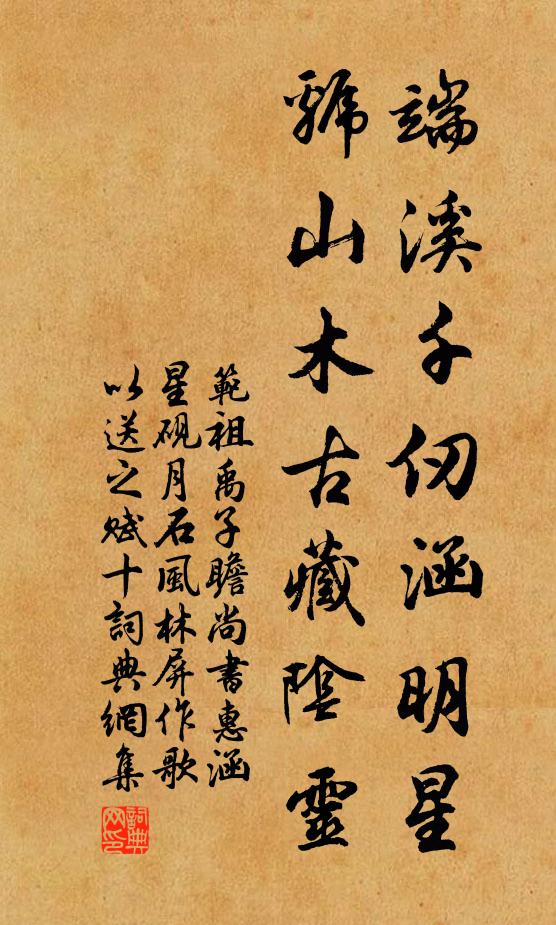 端溪千仞涵明星
虢山木古藏陰靈
範祖禹子瞻尚書惠涵
星硯月石風林屏作歌
以送之賦十詞典網集
詞典网印